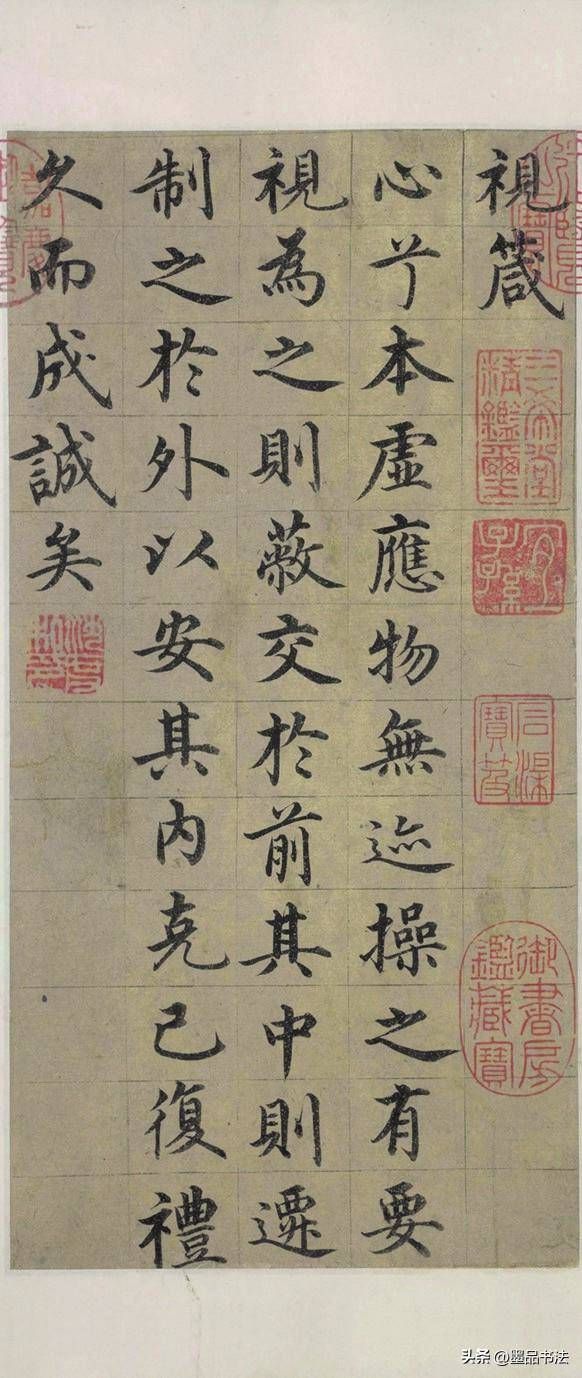 視箴
三希堂精鑑璽
宜子孫
石渠寶笈
御書房鑑藏寶
心兮本虛應物無迹操之有要
視為之則蔽交於前其中則遷
制之於外以安其內克己復禮
久而成誠矣
头条 @墨品书法